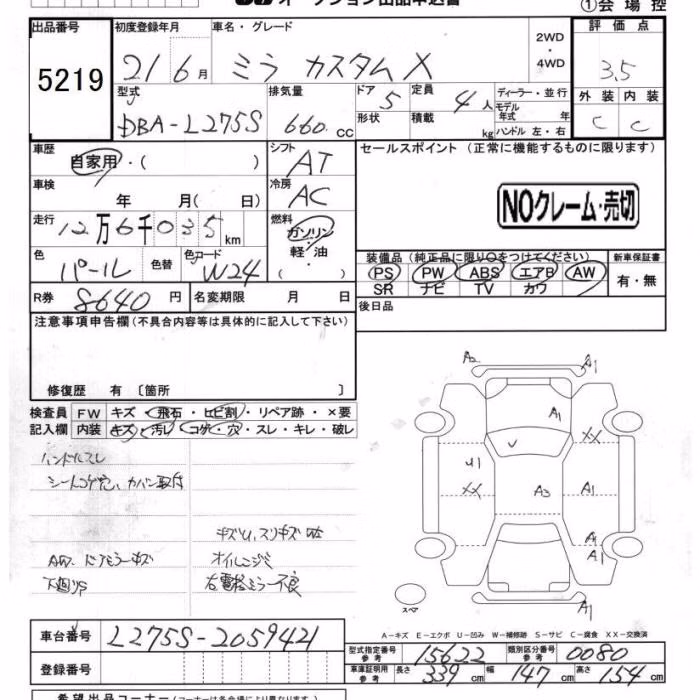 オークション出品申込書
①会場控
出品番号 初度登録年月 車名・グレード 2WD・4WD 評価点
5219 21 6月 ミラ カスタムX 3.5
型式 排気量 ドア 定員 ディーラー・並行 外装 内装
DBA-L275S 660 cc 5 4人 モデル年式 年 C C
形状 積載 kg ハンドル 左・右
車歴 自家用・( ) シフト AT セールスポイント(正常に機能するものに限ります)
車検 年 月( 日) 冷房 AC
NOクレーム・売切
走行 12万6千035km 燃料 ガソリン・軽油 ( )
色 パール 色替 色コード W24
装備品(純正品に限り○をつけてください) 新車保証書
PS PW ABS エアB AW 有・無
SR ナビ TV カワ
R券 8640円 名変期限 月 日 後日品
注意事項申告欄(不具合内容等は具体的に記入して下さい)
修復歴 有〔箇所 〕
検査員 FW キズ・飛石・ヒビ割・リペア跡・×要
記入欄 内装 キズ・汚レ・コゲ・穴・スレ・キレ・破レ
ハンドルスレ
シートコゲ穴、カバン取付
キズU、スリキズ
AW、ドアミラーキズ オイルニジミ
下廻りS 右電格ミラー不良
A2 A1
A1
XX
V
U1
XX A3 A1
A1
A1
スペア A1
A-キズ E-エクボ U-凹み W-補修跡 S-サビ C-腐食 XX-交換済
車台番号 L275S-2059421
型式指定番号 参考 15622 類別区分番号 参考 0080
登録番号
車庫証明用 参考 長さ 339cm 幅 147cm 高さ 154cm
希望出品コーナー(コーナーは各会場により